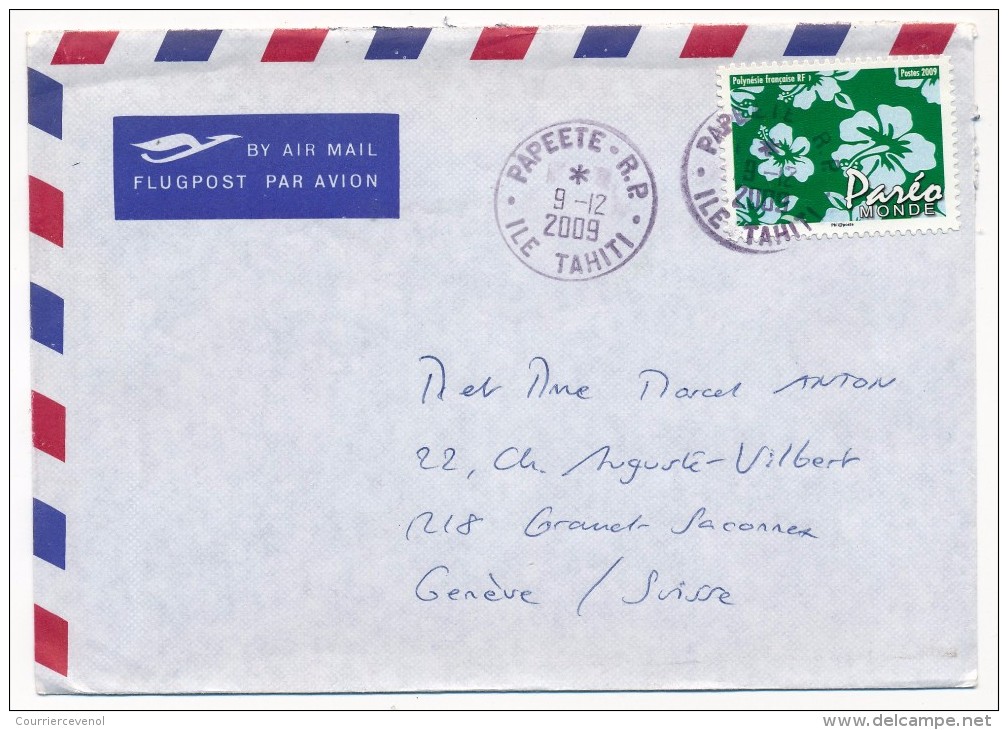 BY AIR MAIL
FLUGPOST PAR AVION
PAPEETE - R.P.
*
9 - 12
2009
ILE TAHITI
PAPEETE R P
*
9 - 12
2009
ILE TAHITI
Polynésie française RF
Postes 2009
Paréo
MONDE
M et Mme Marcel ANTON
22, Ch. Auguste-Vilbert
1218 Grand-Saconnex
Genève / Suisse
Courriercevenol
delcampe.net